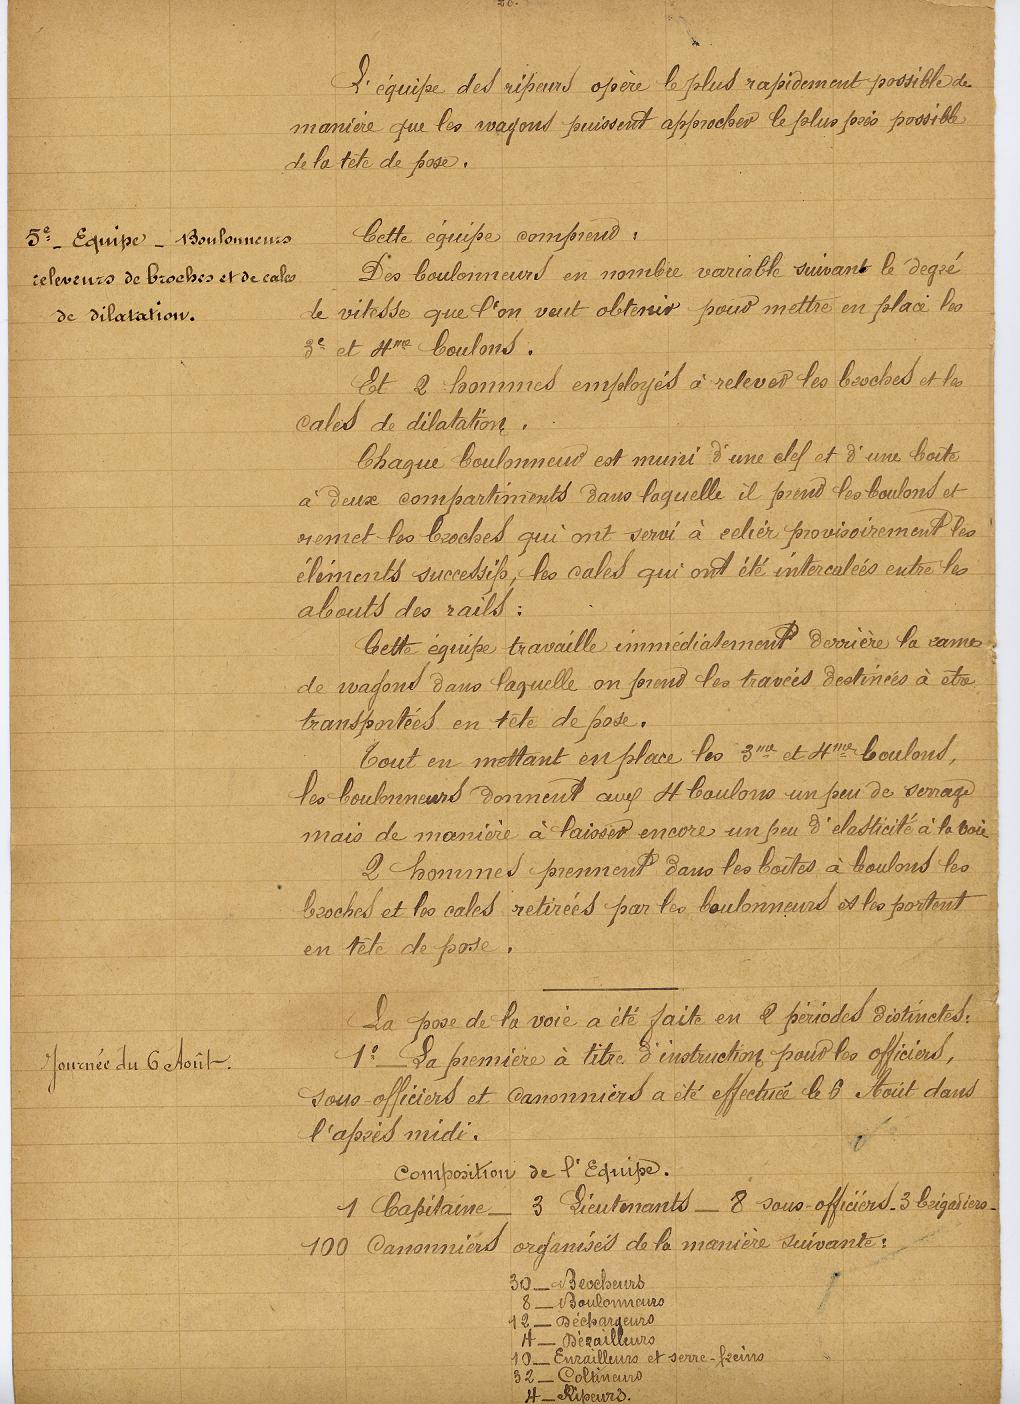 26.
L'équipe des ripeurs opère le plus rapidement possible de
manière que les wagons puissent approcher le plus près possible
de la tête de pose.
5e_ Equipe _ Boulonneurs
releveurs de broches et de cales
de dilatation.
Cette équipe comprend :
Des boulonneurs en nombre variable suivant le degré
de vitesse que l'on veut obtenir pour mettre en place les
3e et 4me boulons.
Et 2 hommes employés à relever les broches et les
cales de dilatation.
Chaque boulonneur est muni d'une clef et d'une boîte
à deux compartiments dans laquelle il prend les boulons et
remet les broches qui ont servi à relier provisoirement les
éléments successifs, les cales qui ont été intercalées entre les
abouts des rails :
Cette équipe travaille immédiatement derrière la rame
de wagons dans laquelle on prend les travées destinées à être
transportées en tête de pose.
Tout en mettant en place les 3me et 4me boulons,
les boulonneurs donnent aux 4 boulons un peu de serrage
mais de manière à laisser encore un peu d'élasticité à la voie
2 hommes prennent dans les boîtes à boulons les
broches et les cales retirées par les boulonneurs et les portent
en tête de pose.
La pose de la voie a été faite en 2 périodes distinctes:
Journée du 6 Août.
1e_ La première à titre d'instruction pour les officiers,
sous-officiers et canonniers a été effectuée le 6 Août dans
l'après midi.
Composition de l'Equipe.
1 Capitaine_ 3 Lieutenants_ 8 sous-officiers_3 brigadiers_
100 Canonniers organisés de la manière suivante:
30_Brocheurs
8_Boulonneurs
12_Déchargeurs
4_Dérailleurs
10_Enrailleurs et serre-freins
32_Coltineurs
4_Ripeurs.